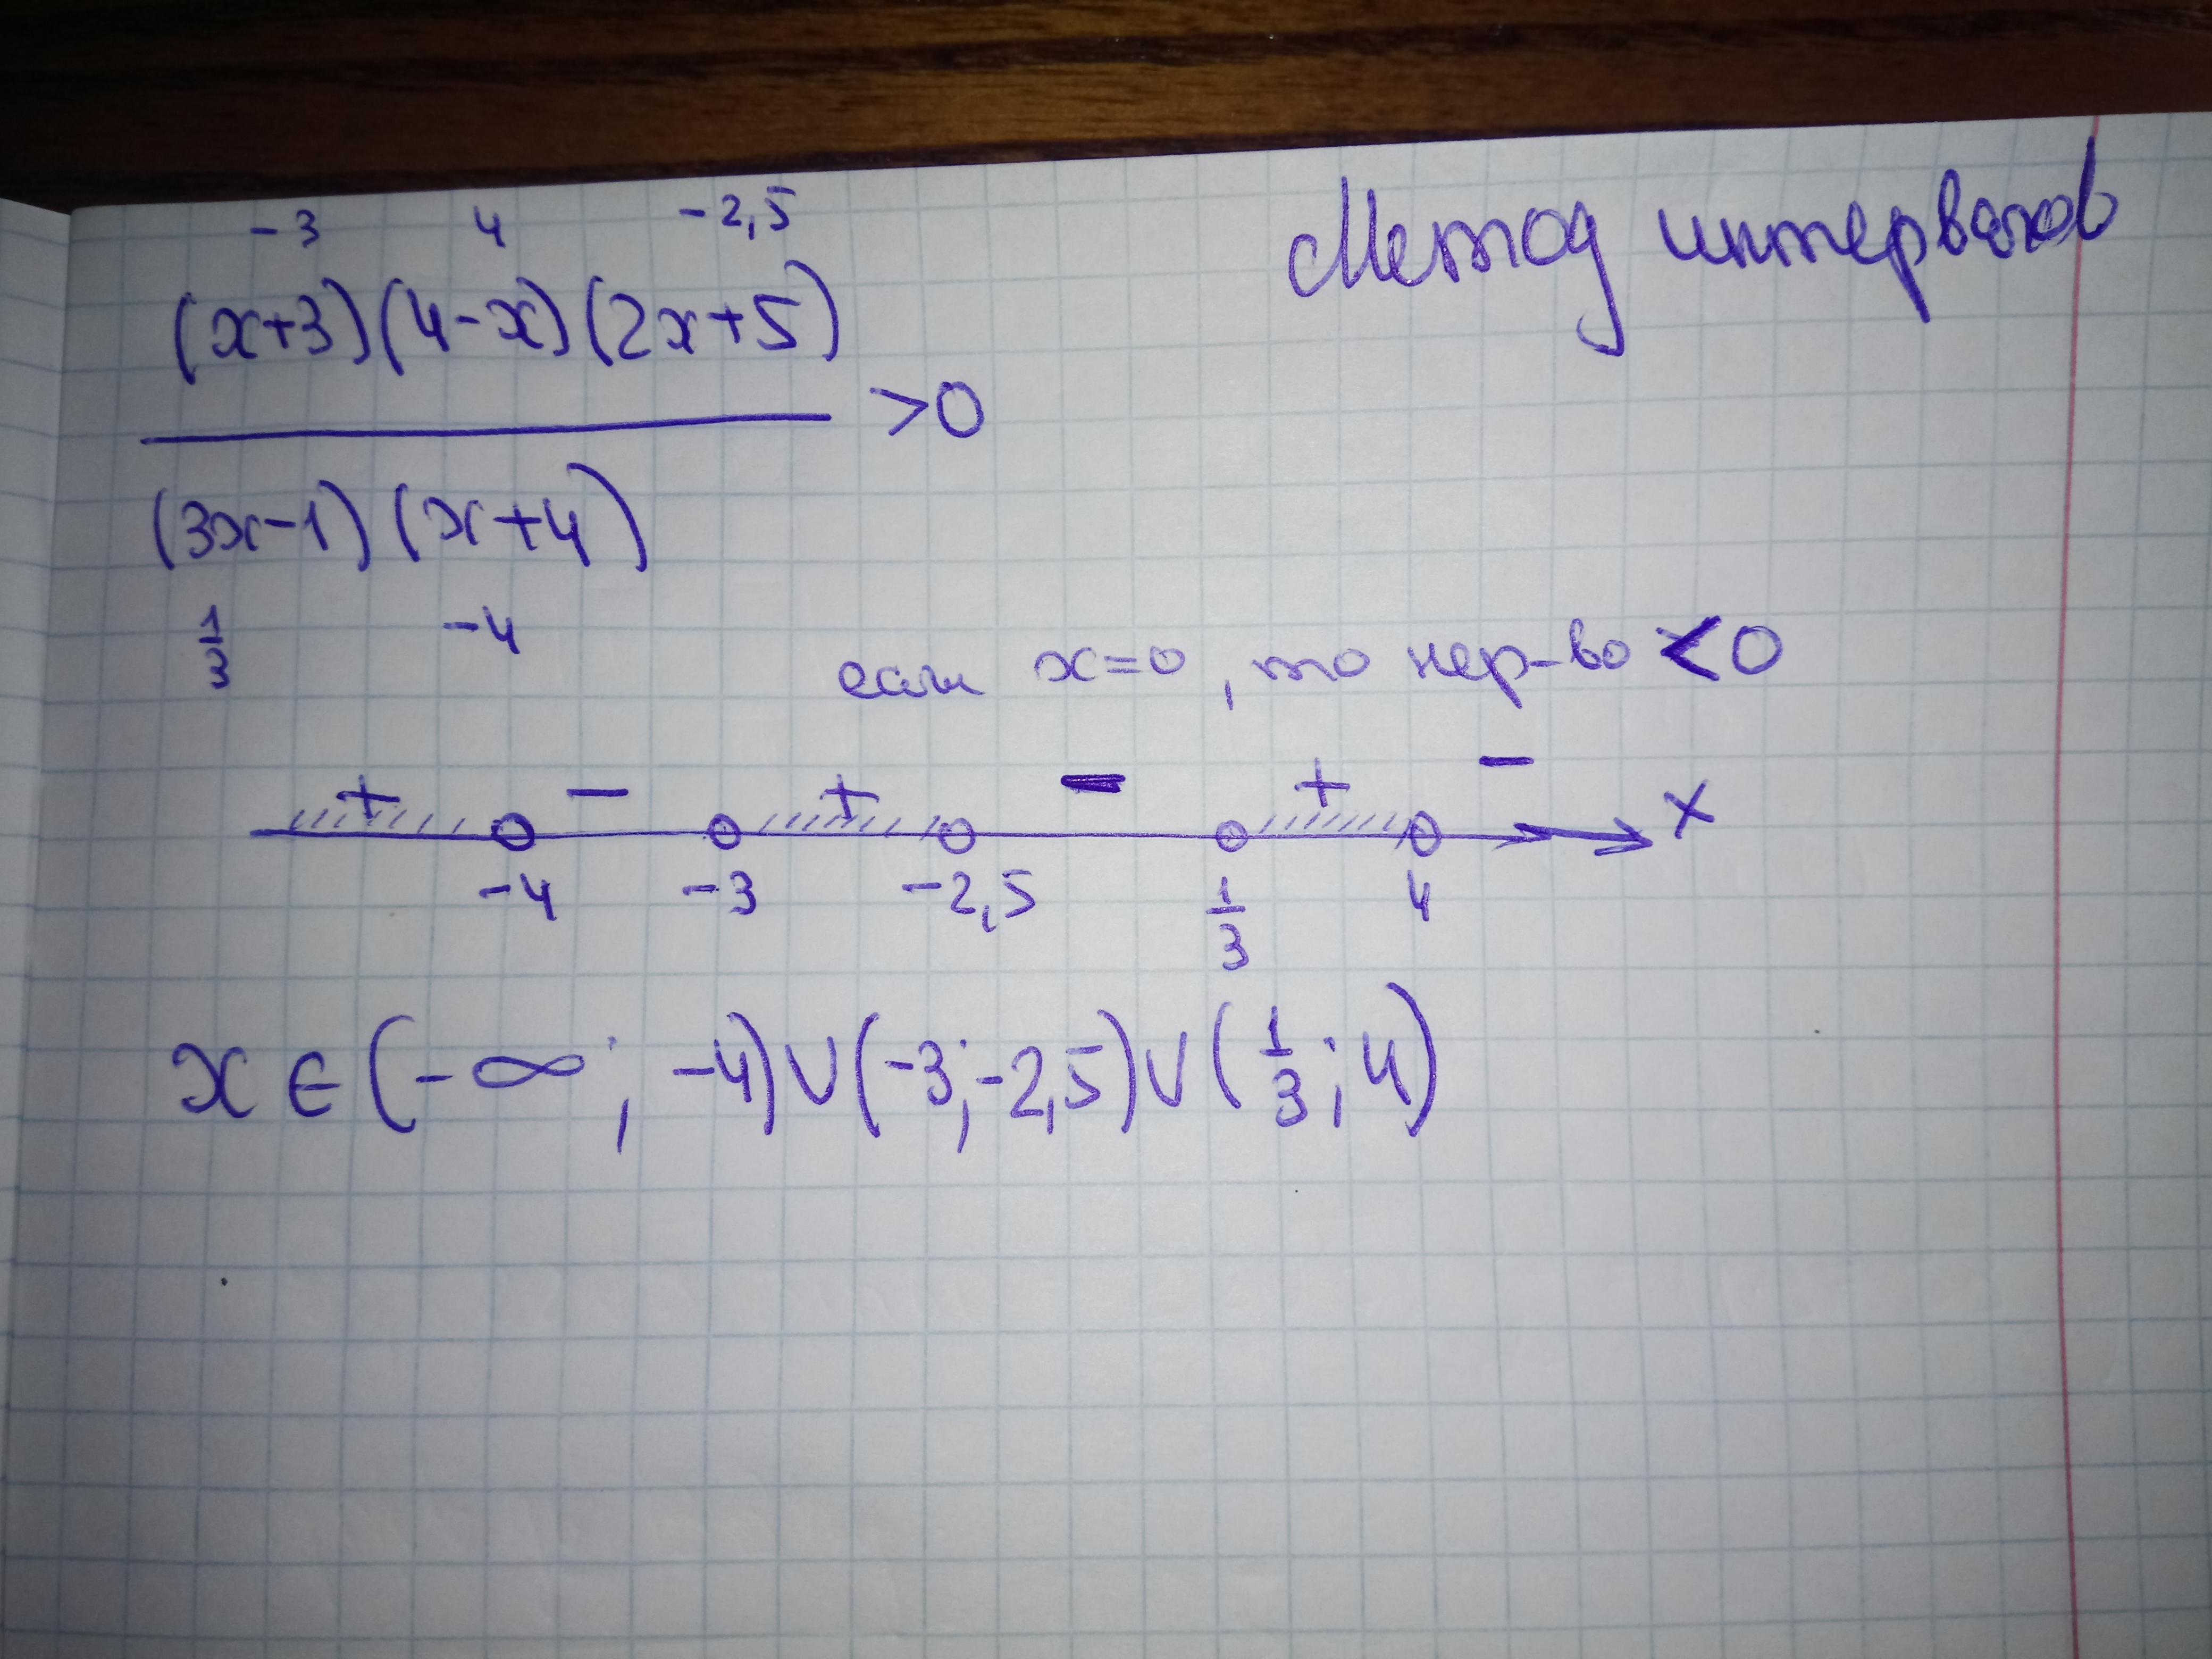 Метод интервалов
-3 4 -2,5
(x+3)(4-x)(2x+5)
>0
(3x-1)(x+4)
1/3 -4
если x=0, то нер-во <0
+ - + - + -
-4 -3 -2,5 1/3 4 x
x∈(-∞; -4)∪(-3;-2,5)∪(1/3;4)